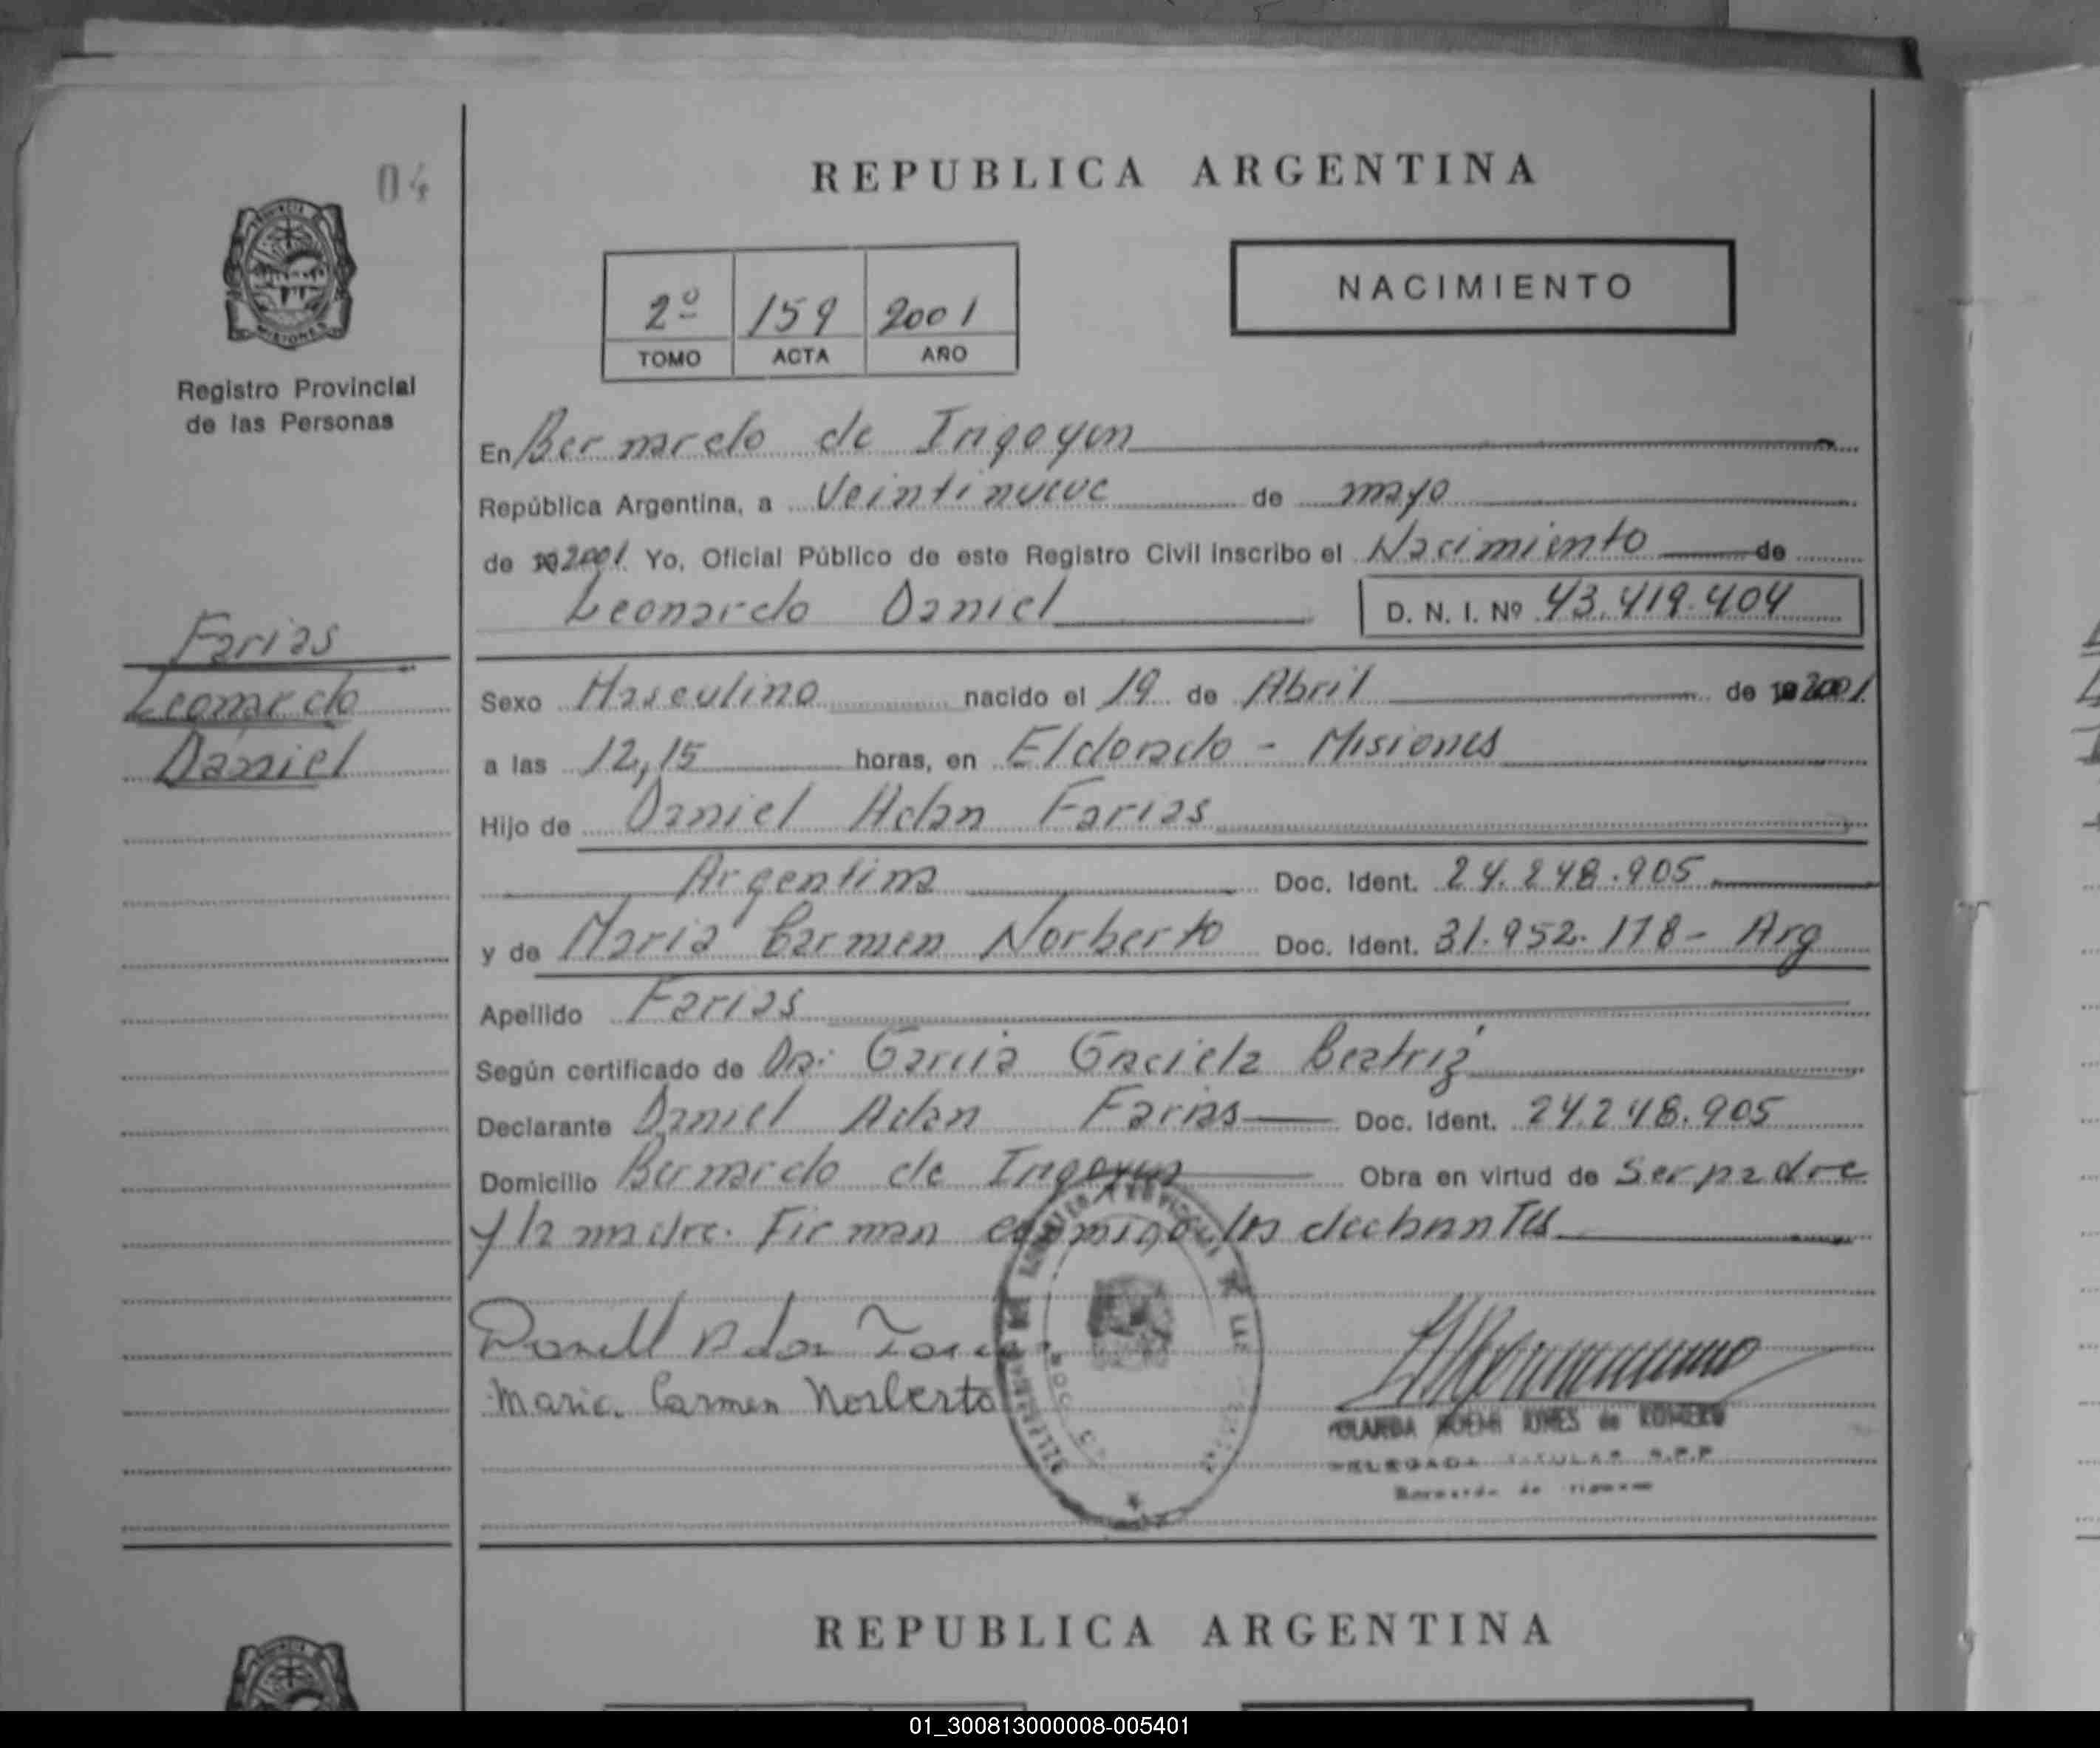 04
REPUBLICA ARGENTINA
2º 159 2001
TOMO ACTA AÑO
NACIMIENTO
MISIONES
Registro Provincial
de las Personas
En Bernardo de Irigoyen
República Argentina, a Veintinueve de mayo
de 2001. Yo, Oficial Público de este Registro Civil inscribo el Nacimiento de
Leonardo Daniel D. N. I. Nº 43.419.404
Farias
Leonardo
Daniel
Sexo Masculino nacido el 19 de Abril de 2001.
a las 12,15 horas, en Eldorado - Misiones
Hijo de Daniel Adan Farias
Argentina Doc. Ident. 24.248.905
y de Maria Carmen Norberto Doc. Ident. 31.952.178- Arg
Apellido Farias
Según certificado de Dra. Garcia Graciela Beatriz
Declarante Daniel Adan Farias Doc. Ident. 24.248.905
Domicilio Bernardo de Irigoyen Obra en virtud de Ser padre
y la madre. Firman conmigo los declarantes
Maria Carmen Norberto
de ROMERO
DELEGADA TITULAR R.P.P
Bernardo de
REPUBLICA ARGENTINA
01_300813000008-005401